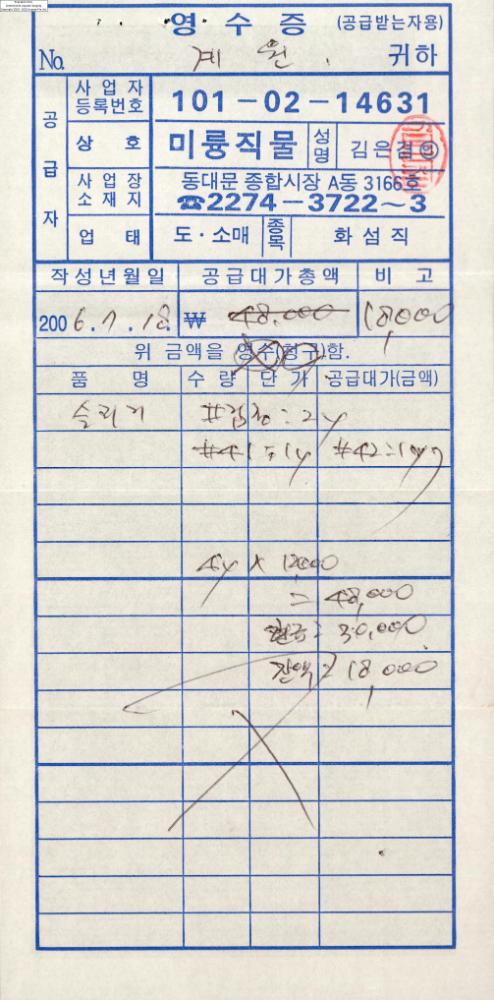 영 수 증 (공급받는자용)
No. 계 원. 귀하
공급자
사업자등록번호 101-02-14631
상 호 미륭직물 성명 김은겸 ㊞
사업장소재지 동대문 종합시장 A동 3166호
☎2274-3722~3
업 태 도·소매 종목 화섬직
작성년월일 공급대가총액 비 고
2006.7.18. ₩ 48.000 18,000
위 금액을 영수(청구)함.
품 명 수 량 단 가 공급대가(금액)
#검정: 2y
#41: 1y #42: 1y
4y x 12000
= 48,000
현금: 30,000
잔액: 18,000